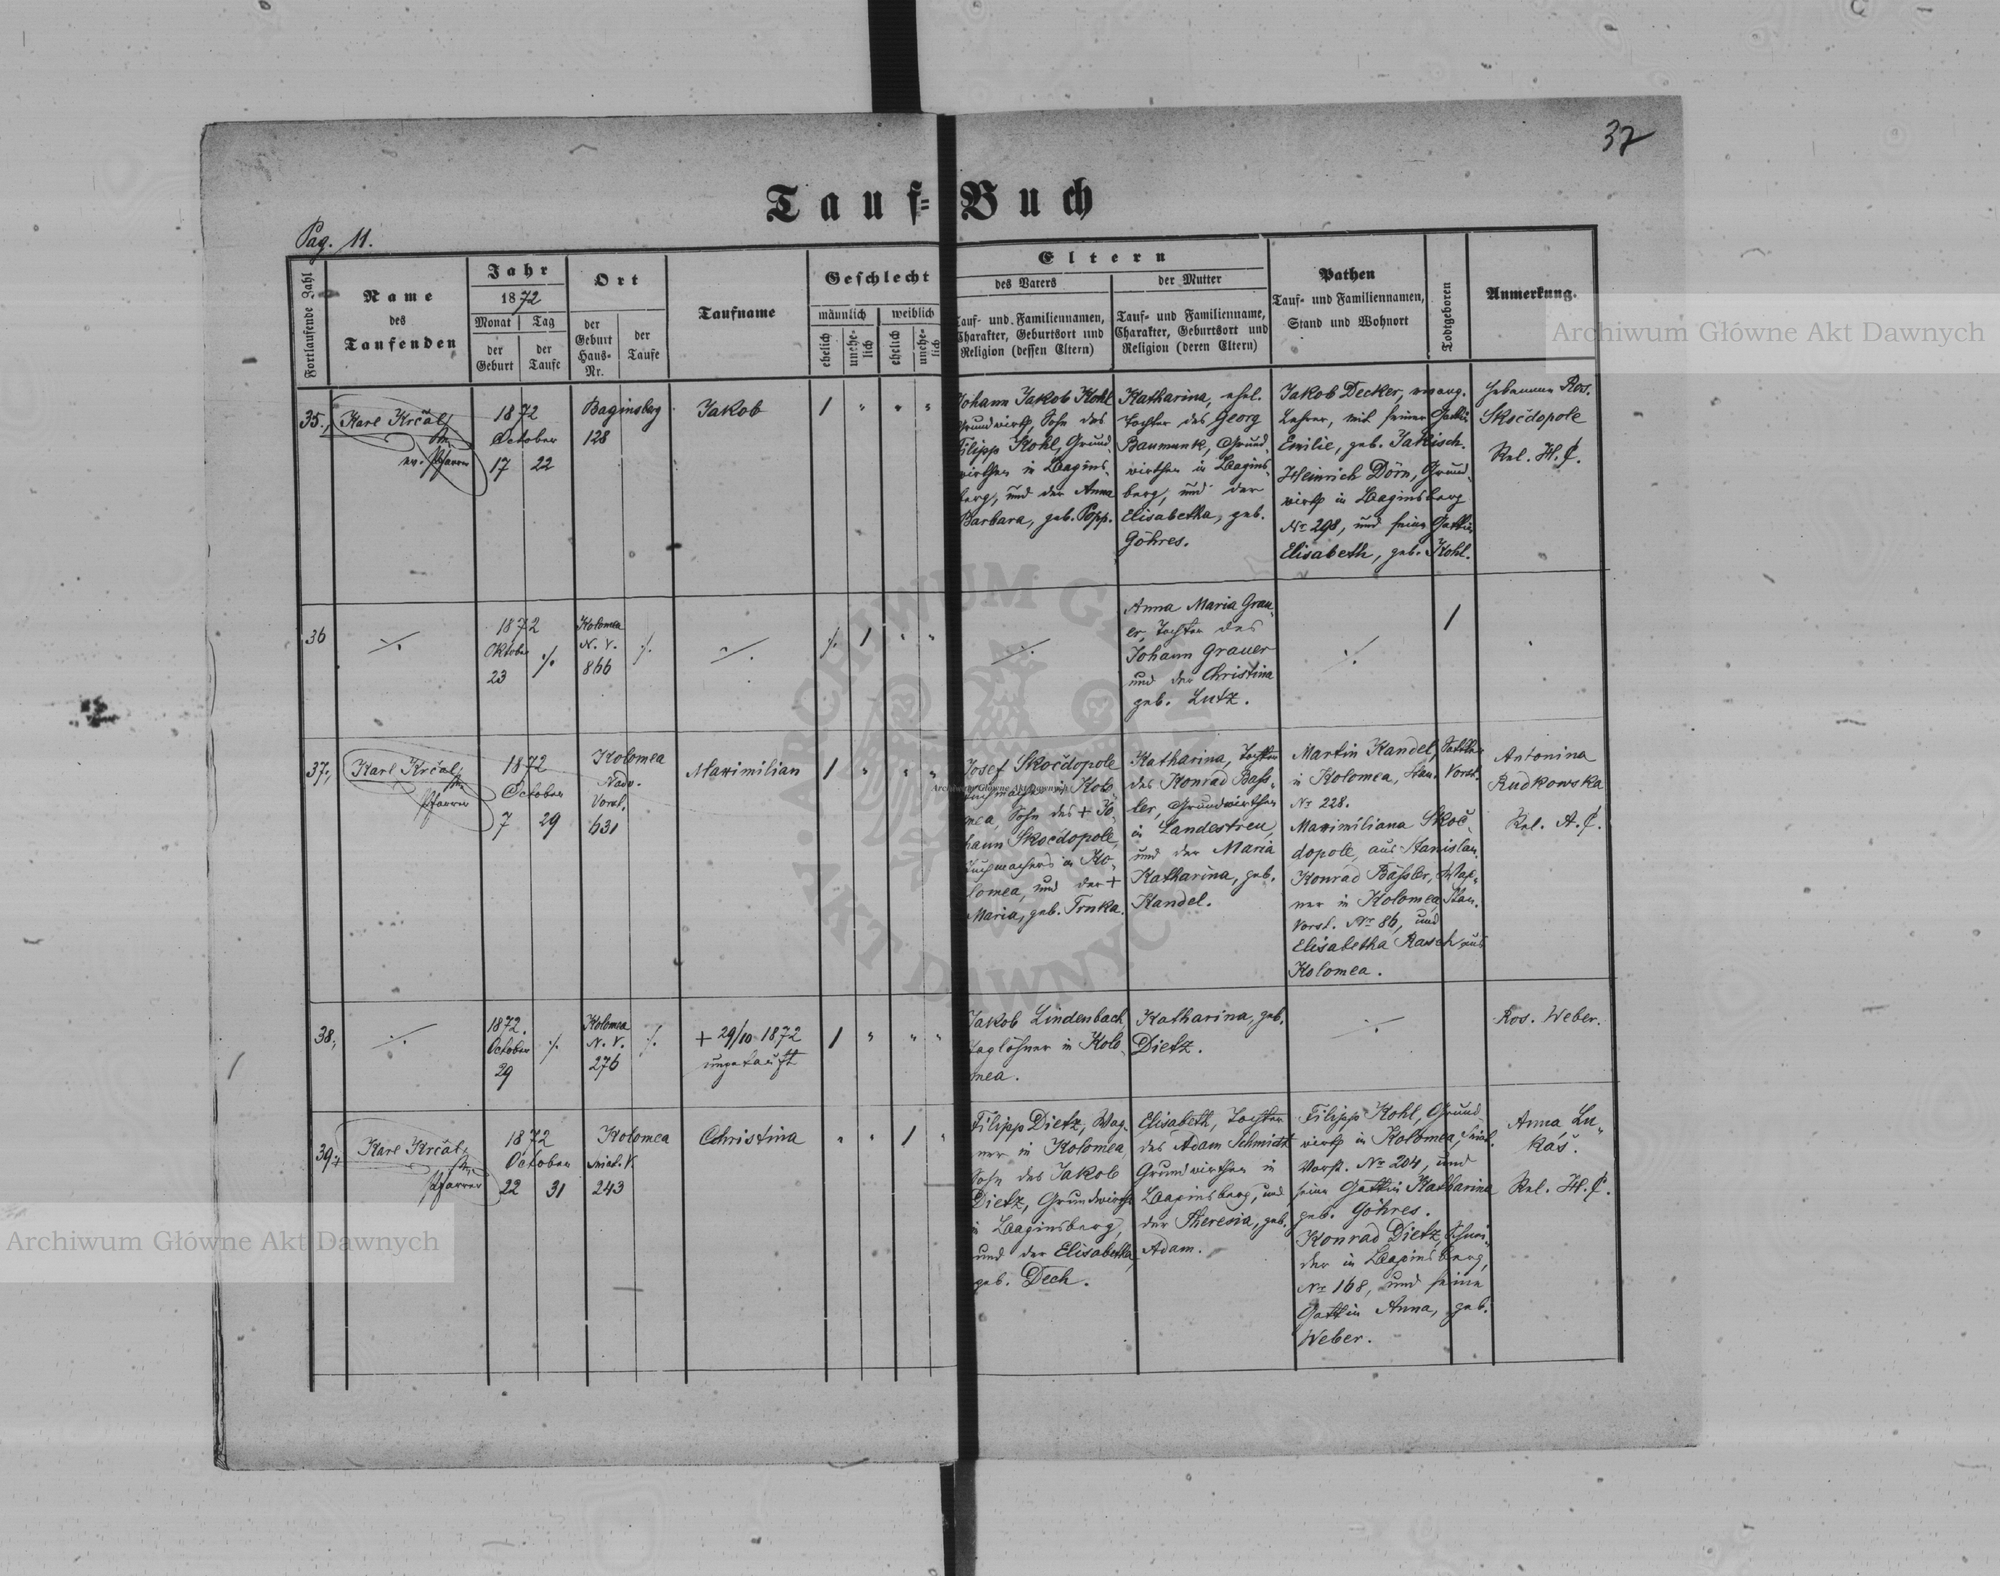 37
Tauf=Buch
Pag. 11.
Fortlaufende Zahl
Name
des
Taufenden
Jahr
1872
Monat
der
Geburt
Tag
der
Taufe
Ort
der
Geburt
Haus=
Nr.
der
Taufe
Taufname
Geschlecht
männlich
weiblich
ehelich
unehe=
lich
ehelich
unehe=
lich
Eltern
des Vaters
Tauf= und Familiennamen,
Charakter, Geburtsort und
Religion (dessen Eltern)
der Mutter
Tauf= und Familienname,
Charakter, Geburtsort und
Religion (deren Eltern)
Pathen
Tauf= und Familiennamen,
Stand und Wohnort
Todtgeboren
Anmerkung.
35.
Karl Krčal,
ev. Pfarrer
1872
October
17 22
Baginsberg
128
Jakob
/ " " "
Johann Jakob Kohl
Grundwirth, Sohn des
Filipp Kohl, Grund-
wirthen in Bagins-
berg, und der Anna
Barbara, geb. Popp.
Katharina, ehel.
Tochter des Georg
Baumunk, Grund-
wirthen in Bagins-
berg, und der
Elisabetha, geb.
Göhres.
Jakob Decker, evang.
Lehrer, mit seiner Gattin
Emilie, geb. Jakisch.
Heinrich Dörn, Grund-
wirth in Baginsberg
Nr 298, und seine Gattin
Elisabeth, geb. Kohl.
Hebamme Ros.
Skočdopole
Rel. H. C.
36
./.
1872
Oktober
23 ./.
Kolomea
N. V.
866
./.
./.
./. / " "
./.
Anna Maria Grau-
er, Tochter des
Johann Grauer
und der Christina
geb. Lutz.
./.
/
37.
Karl Krčal,
Pfarrer
1872
October
7 29
Kolomea
Nadv.
Vorst.
631
Maximilian
/ " " "
Josef Skočdopole
Tuchmacher in Kolo-
mea, Sohn des + Jo-
hann Skočdopole,
Tuchmachers in Ko-
lomea, und der +
Maria, geb. Trnka.
Katharina, Tochter
des Konrad Bass-
ler, Grundwirthen
in Landestreu,
und der Maria
Katharina, geb.
Kandel.
Martin Kandel, Sattler
in Kolomea, Stan. Vorst.
Nr 228.
Maximiliana Skoč-
dopole, aus Stanislau.
Konrad Bassler, Wag-
ner in Kolomea, Stan.
Vorst. Nr 86, und
Elisabetha Rasch, aus
Kolomea.
Antonina
Rudkowska
Rel. A. C.
38.
./.
1872.
October
29 ./.
Kolomea
N. V.
276
./.
+ 29/10 1872
ungetauft
/ " " "
Jakob Lindenbach
Taglöhner in Kolo-
mea.
Katharina, geb.
Dietz.
./.
Ros. Weber.
39.
Karl Krčal,
Pfarrer
1872
October
22 31
Kolomea
Sniat. V.
243
Christina
" " / "
Filipp Dietz, Wag-
ner in Kolomea,
Sohn des Jakob
Dietz, Grundwirths
in Baginsberg,
und der Elisabetha,
geb. Dech.
Elisabeth, Tochter
des Adam Schmidt
Grundwirthen in
Baginsberg, und
der Theresia, geb.
Adam.
Filipp Kohl, Grund-
wirth in Kolomea, Sniat.
Vorst. Nr 204, und
seine Gattin Katharina
geb. Göhres.
Konrad Dietz, Schnei-
der in Baginsberg,
Nr 168, und seine
Gattin Anna, geb.
Weber.
Anna Lu-
kás.
Rel. H. C.
Archiwum Główne Akt Dawnych
Archiwum Główne Akt Dawnych
Archiwum Główne Akt Dawnych
ARCHIWUM GŁÓWNE AKT DAWNYCH